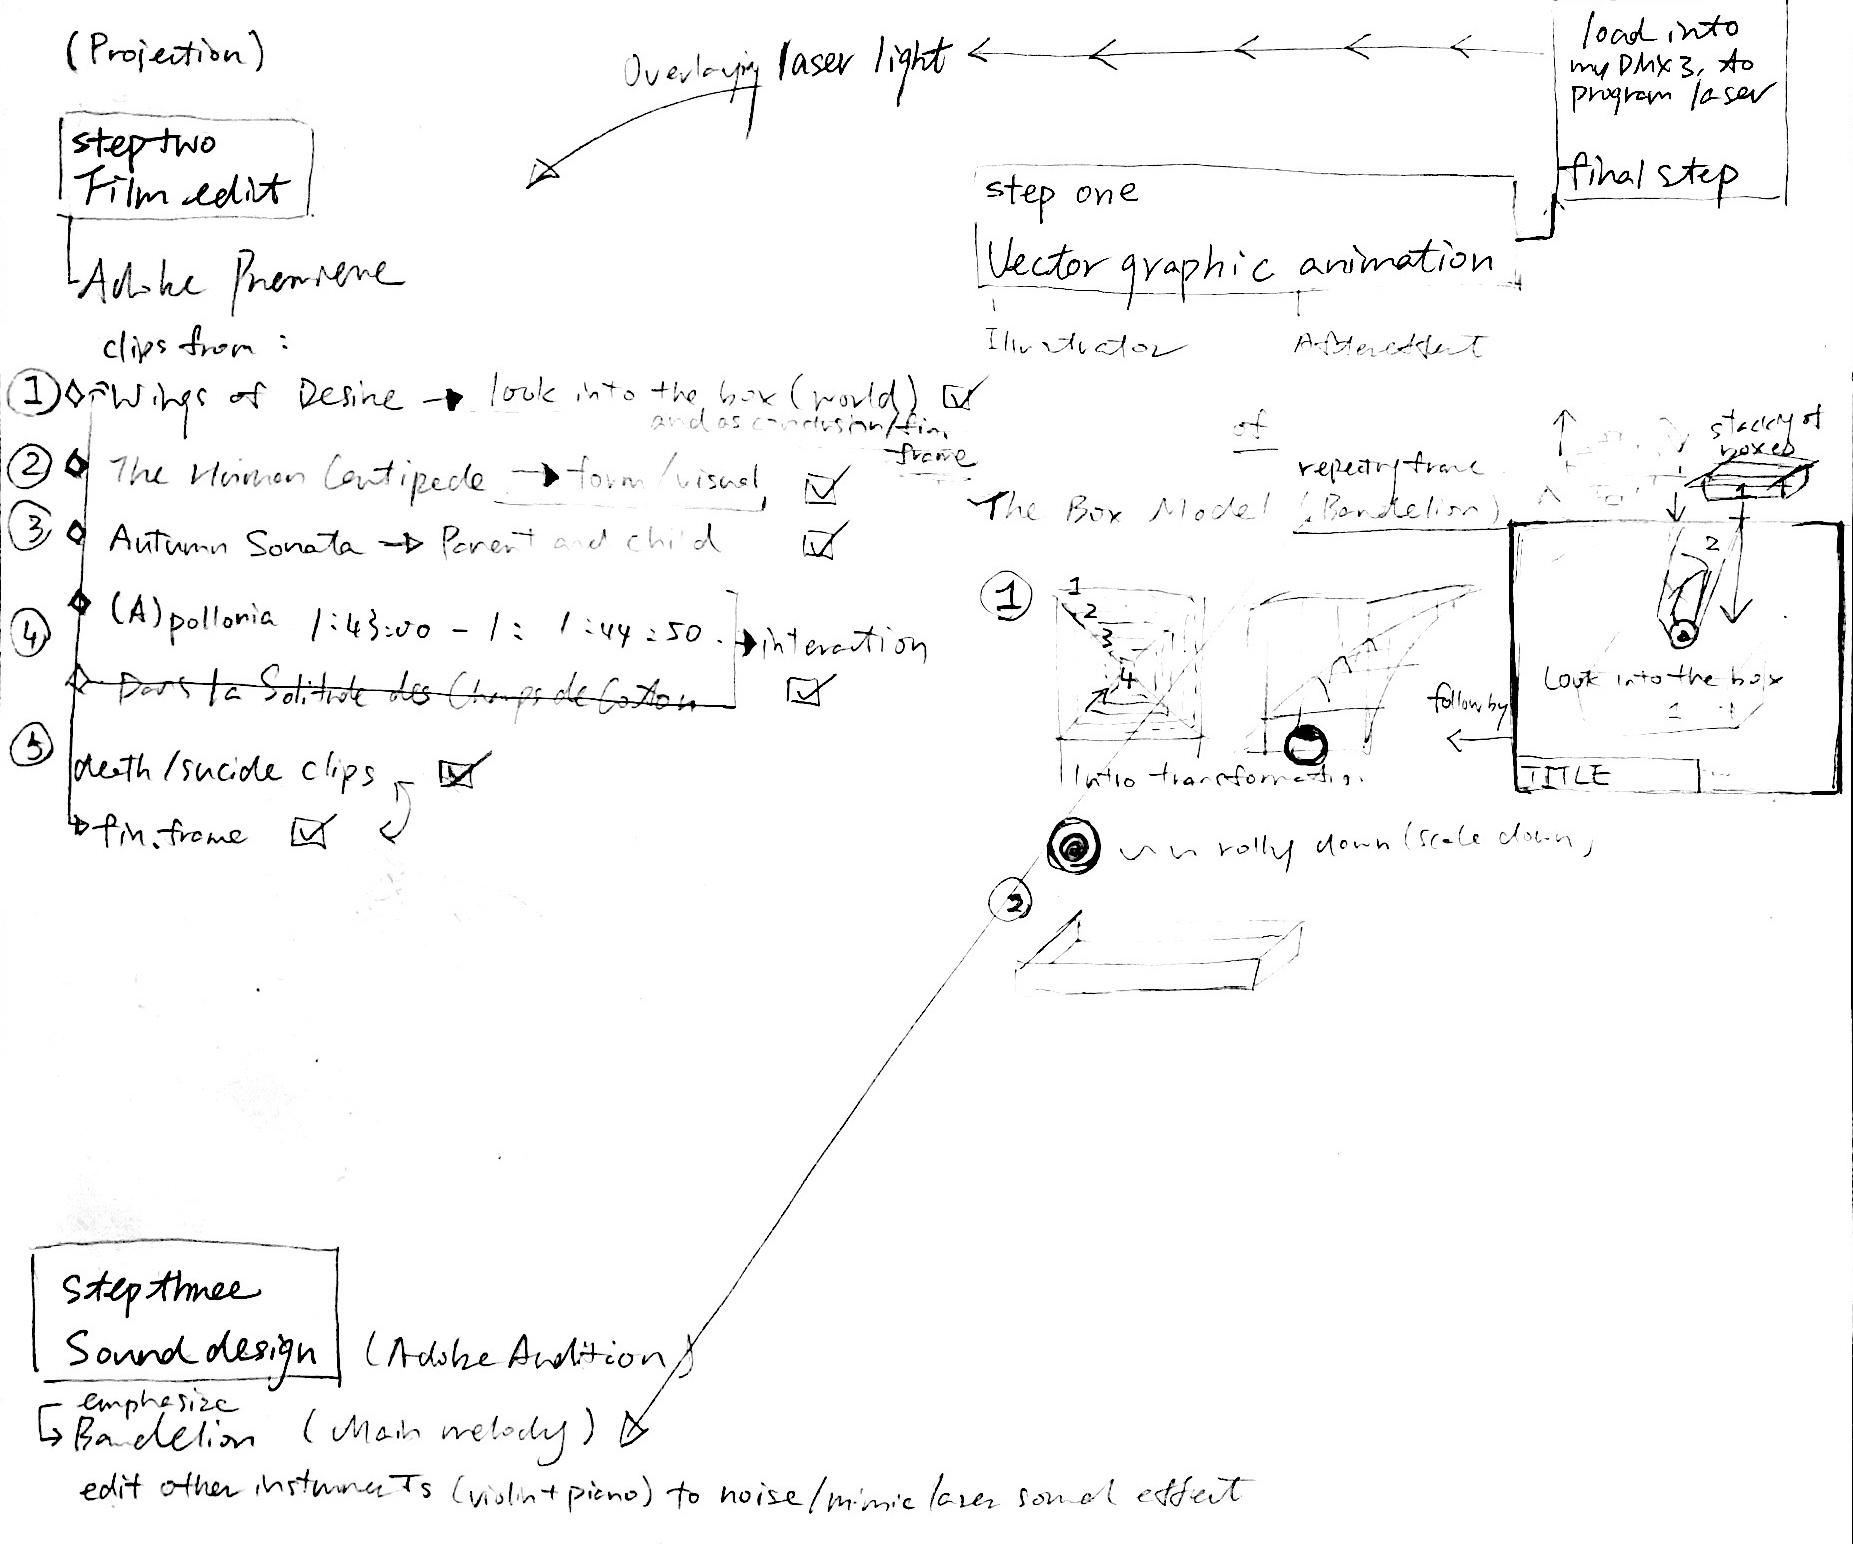 (Projection)
Overlaying laser light
load into
my DMX3, to
program laser
final step
step two
Film edit
step one
Vector graphic animation
Illustrator
Aftereffect
Adobe Premiere
clips from :
1 Wings of Desire → look into the box (world)
and as conclusion/fin.
frame
2 The Human Centipede → form/visual
3 Autumn Sonata → Parent and child
4 (A)pollonia 1:43:00 - 1: 1:44:50 . → interaction
Dans la Solitude des Champs de Coton
5 death/sucide clips
fin. frame
of
repeating frame
The Box Model (Bandelion)
stacky of
boxes
1
2
Look into the box
1
TITLE
follow by
1
1
2
3
4
Intro transformation.
rolly down (scale down)
2
step three
Sound design (Adobe Audition)
emphasize
Bandelion (Main melody)
edit other instruments (violin + piano) to noise/mimic laser sound effect